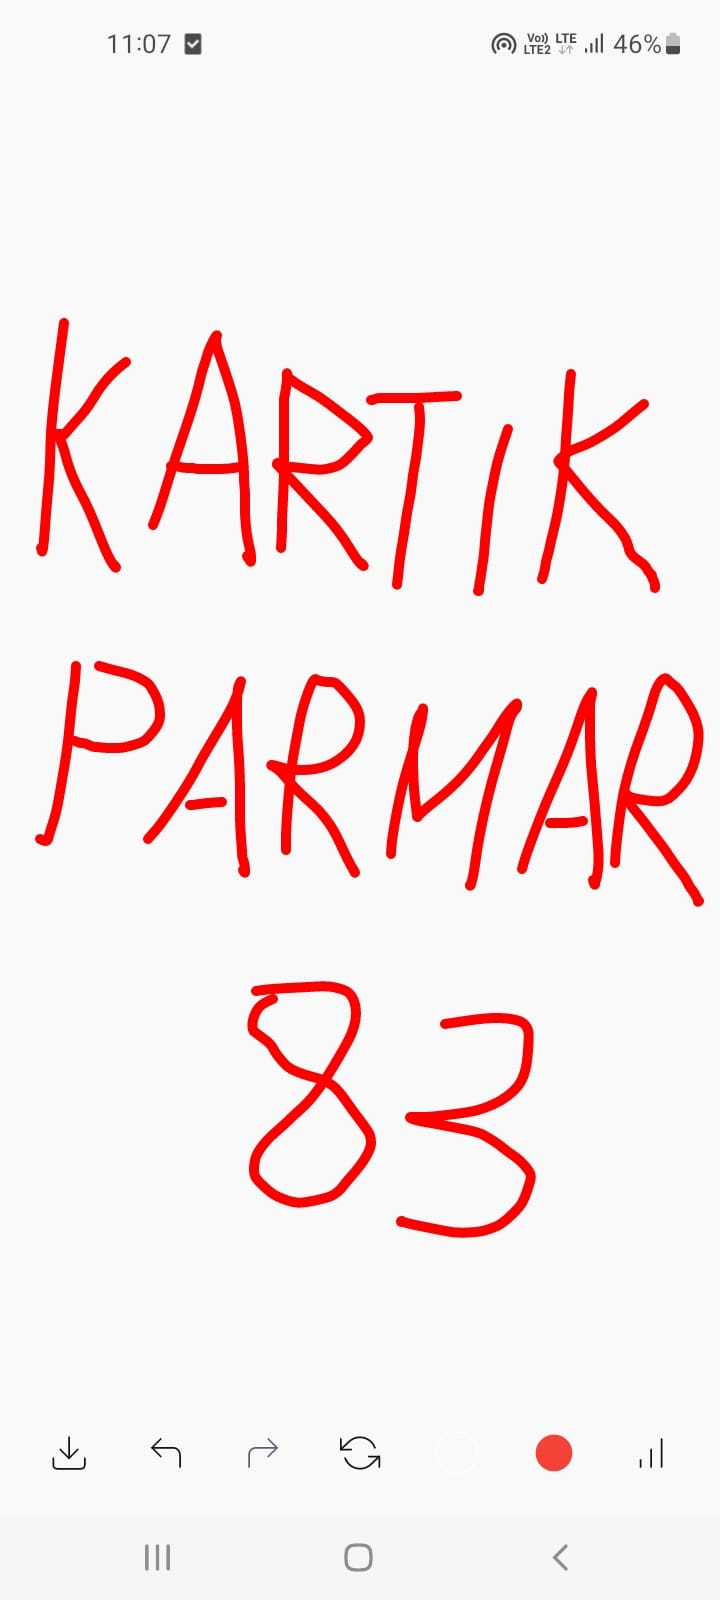 11:07 Vo)) LTE 46%
LTE2
KARTIK
PARMAR
83